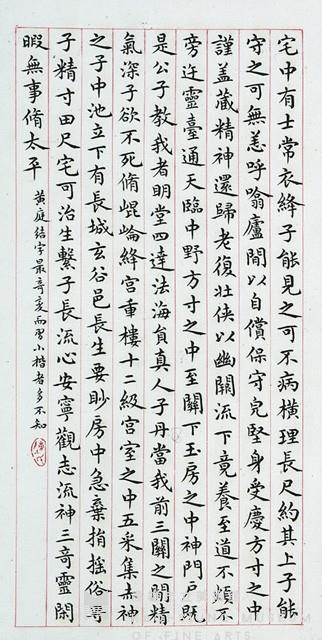 宅中有士常衣絳子能見之可不病橫理長尺約其上子能
守之可無恙呼噏廬間以自償保守完堅身受慶方寸之中
謹蓋藏精神還歸老復壯俠以幽闕流下竟養至道不煩不
旁迕靈臺通天臨中野方寸之中至關下玉房之中神門戶既
是公子教我者明堂四達法海員真人子丹當我前三關之間精
氣深子欲不死脩崐崘絳宮重樓十二級宮室之中五采集赤神
之子中池立下有長城玄谷邑長生要眇房中急棄捐搖俗專
子精寸田尺宅可治生繫子長流心安寧觀志流神三奇靈閑
暇無事脩太平
黃庭結字最奇 而習小楷者多不知
OF FINE ARTS